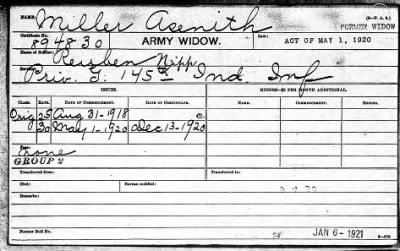 NAME: Miller Asenith (3—P. A. B.)
FORMER WIDOW
Certificate No. 894830 ARMY WIDOW. Law: ACT OF MAY 1, 1920
Name of Soldier: Reuben Nipp
Service: Priv. G. 145th Ind. Inf
ISSUES. MINORS—$2 PER MONTH ADDITIONAL.
CLASS. RATE. DATE OF COMMENCEMENT. DATE OF CERTIFICATE. NAME. COMMENCEMENT. ENDING.
Orig 25 Aug 31-1918 c
30 May 1-1920 Dec 13-1920
GROUP
Transferred from: Transferred to:
Died: Bureau notified:
Remarks:
Former Roll No. JAN 6- 1921